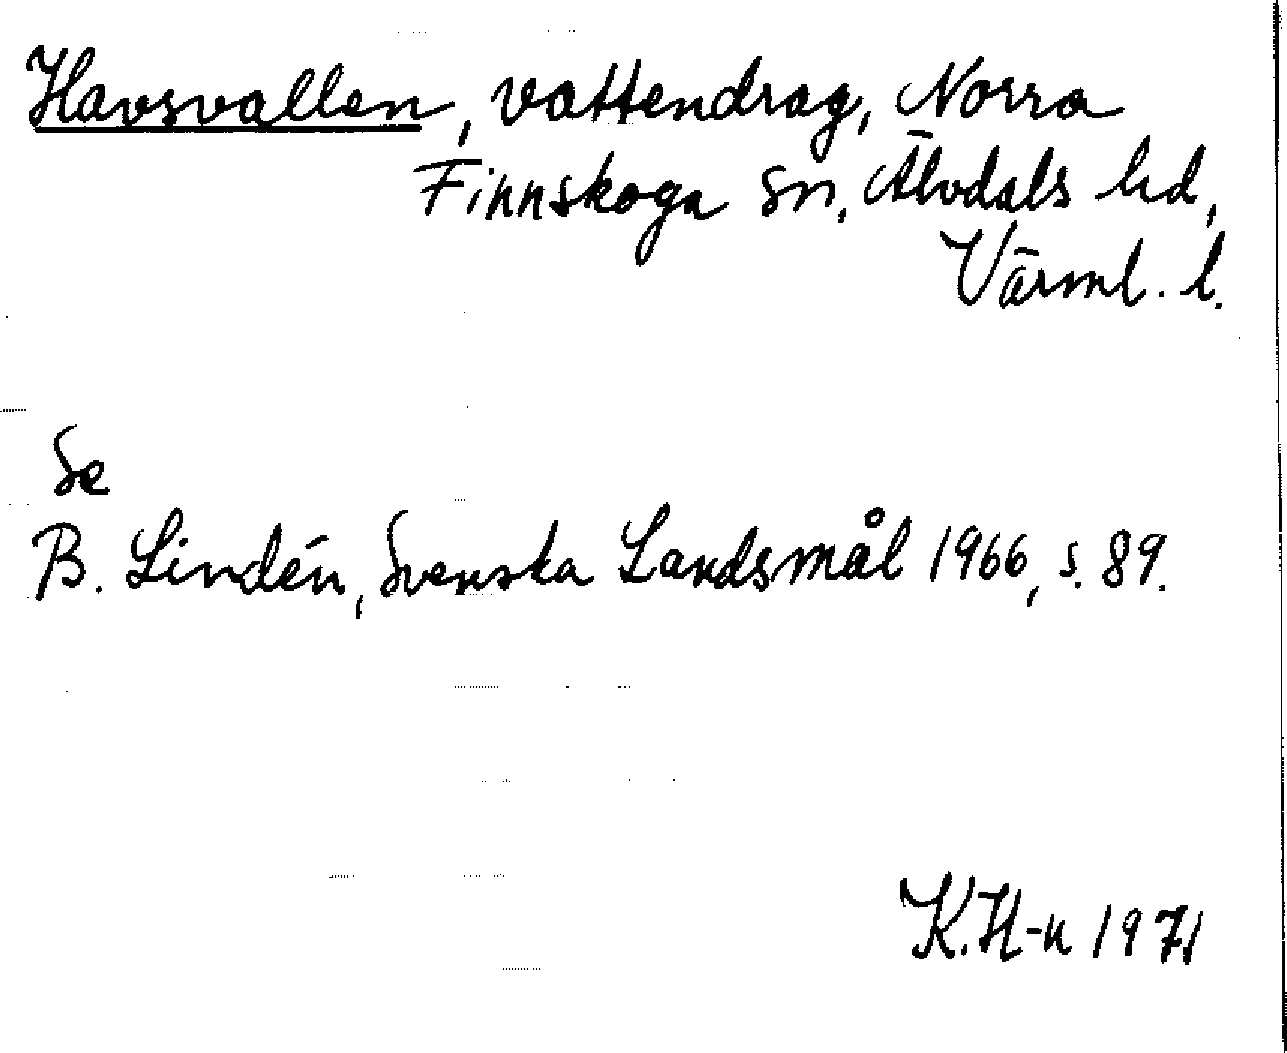 Havsvallen, vattendrag, Norra
Finnskoga sn, Älvdals hd,
Värml. l.
Se
B. Lindén, Svenska Landsmål 1966, s. 89.
K.H-n 1971